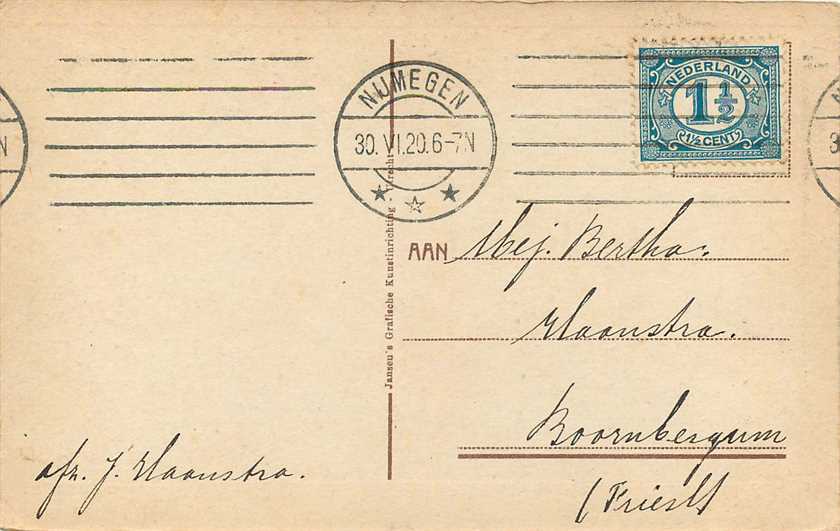 NIJMEGEN
30.VI.20.6-7N
NEDERLAND
1 1/2
1½ CENT
Jansen's Grafische Kunstinrichting Utrecht
AAN
Mej. Bertha.
Haanstra.
Boornbergum
(Friesl)
afz. J. Haanstra.